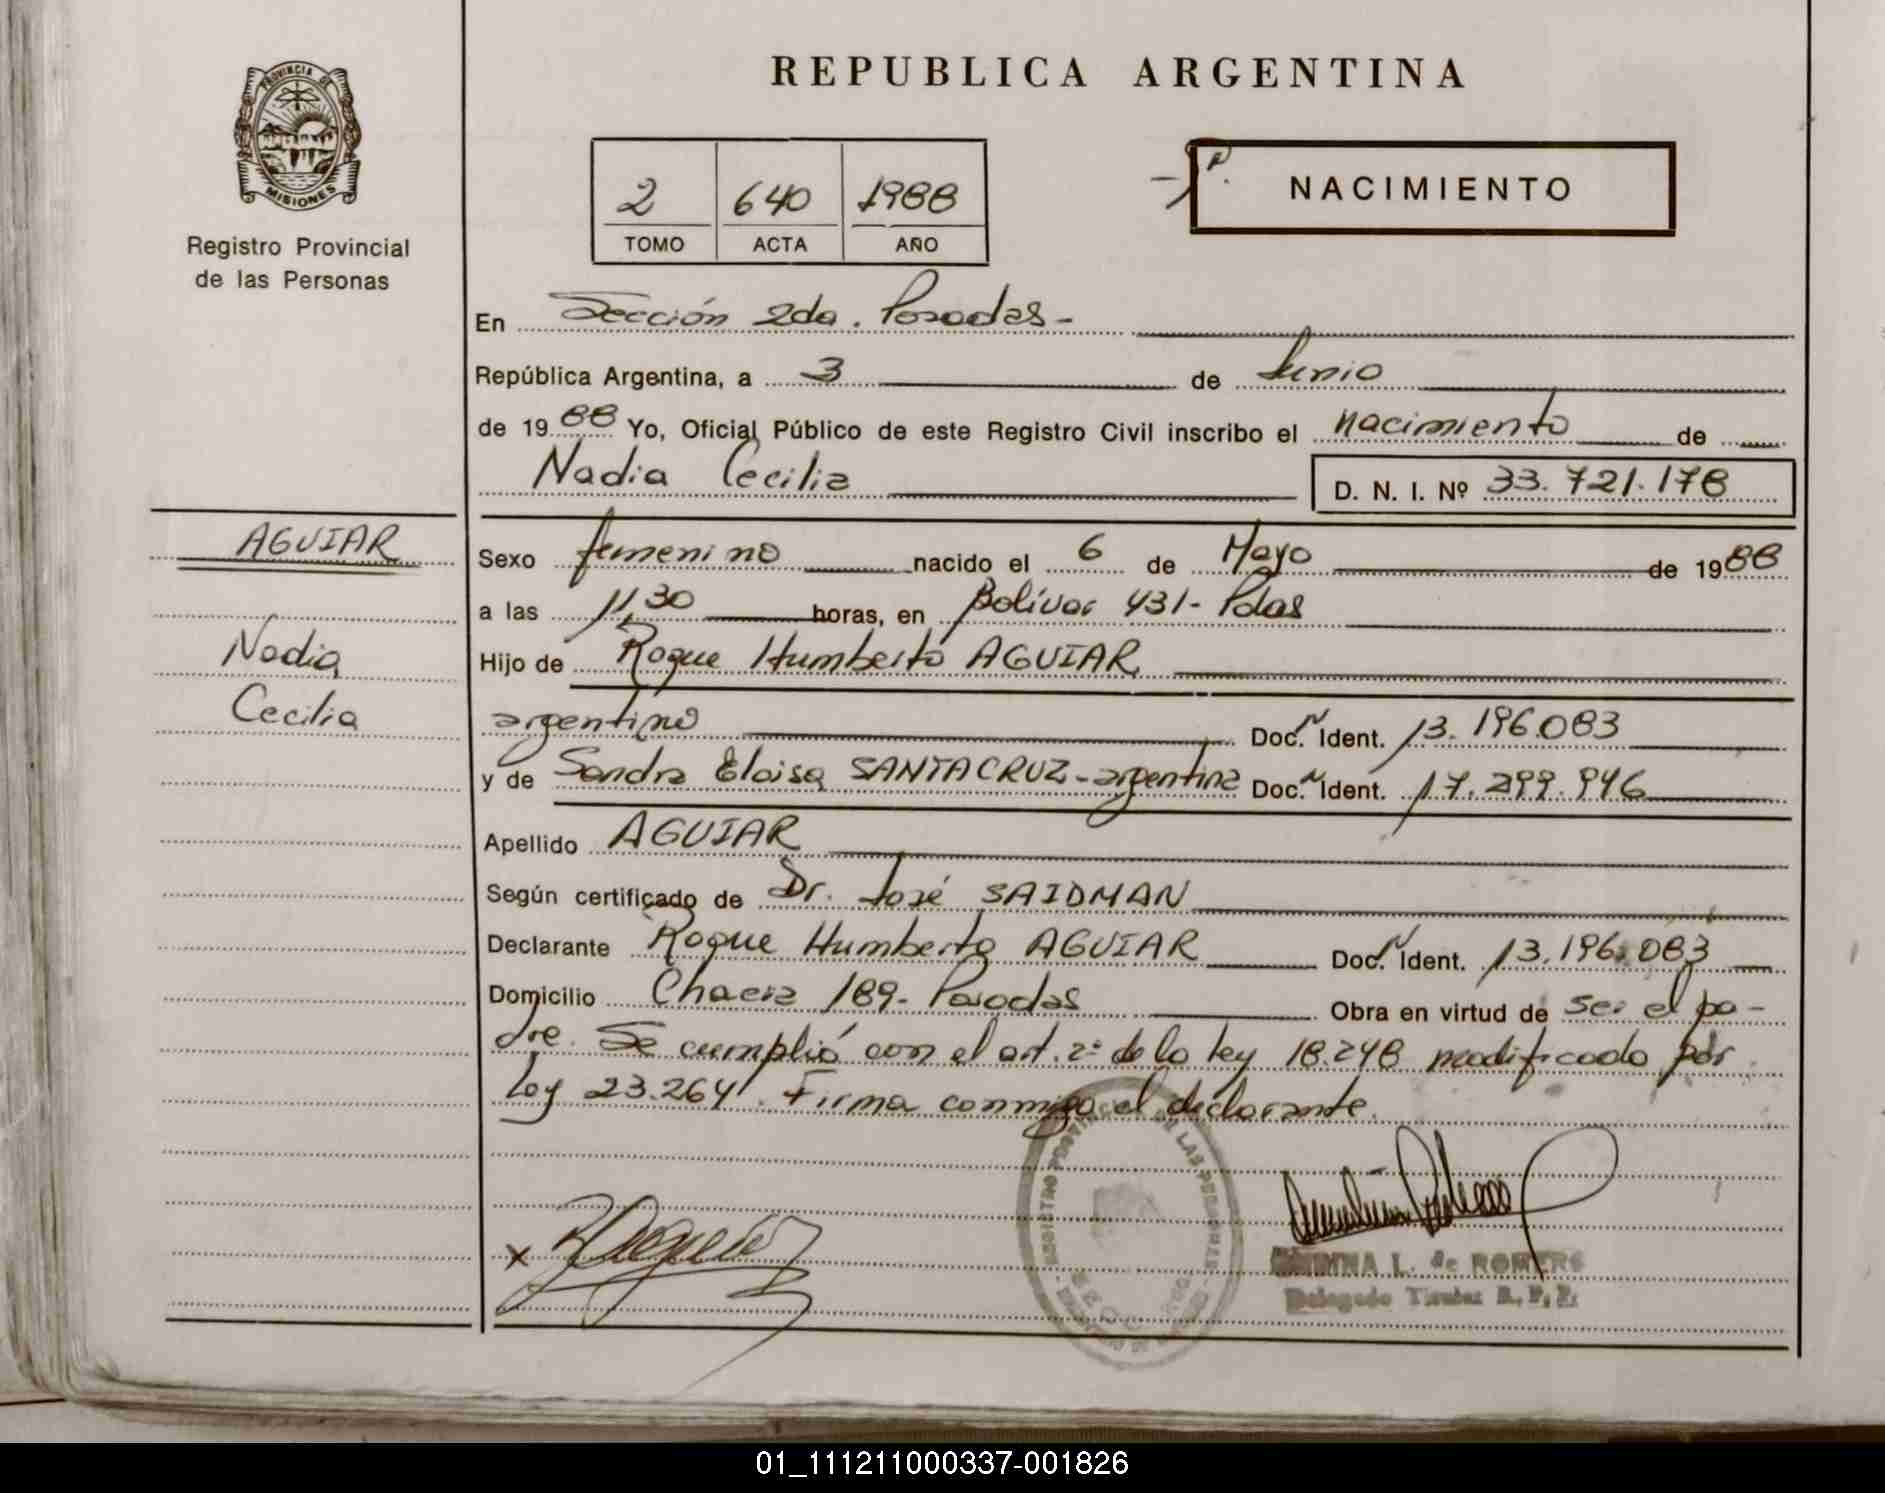 PROVINCIA DE
MISIONES
Registro Provincial
de las Personas
REPUBLICA ARGENTINA
2 640 1988
TOMO ACTA AÑO
NACIMIENTO
En Sección 2da. Posadas-
República Argentina, a 3 de Junio
de 1988 Yo, Oficial Público de este Registro Civil inscribo el nacimiento de
Nadia Cecilia D. N. I. Nº 33.721.178
AGUIAR
Nadia
Cecilia
Sexo femenino nacido el 6 de Mayo de 1988
a las 11,30 horas, en Bolívar 431- Pdas
Hijo de Roque Humberto AGUIAR
argentino Doc. Ident. 13.196.083
y de Sandra Eloisa SANTACRUZ - argentina Doc. Ident. 17.299.946
Apellido AGUIAR
Según certificado de Dr. José SAIDMAN
Declarante Roque Humberto AGUIAR Doc. Ident. 13.196.083
Domicilio Chacra 189- Posadas Obra en virtud de ser el pa-
dre. Se cumplió con el art. 2º de la ley 18.248 modificado por
ley 23.264. Firma conmigo el declarante.
x
L. de ROMERO
Delegado Titular R. P. P.
01_111211000337-001826